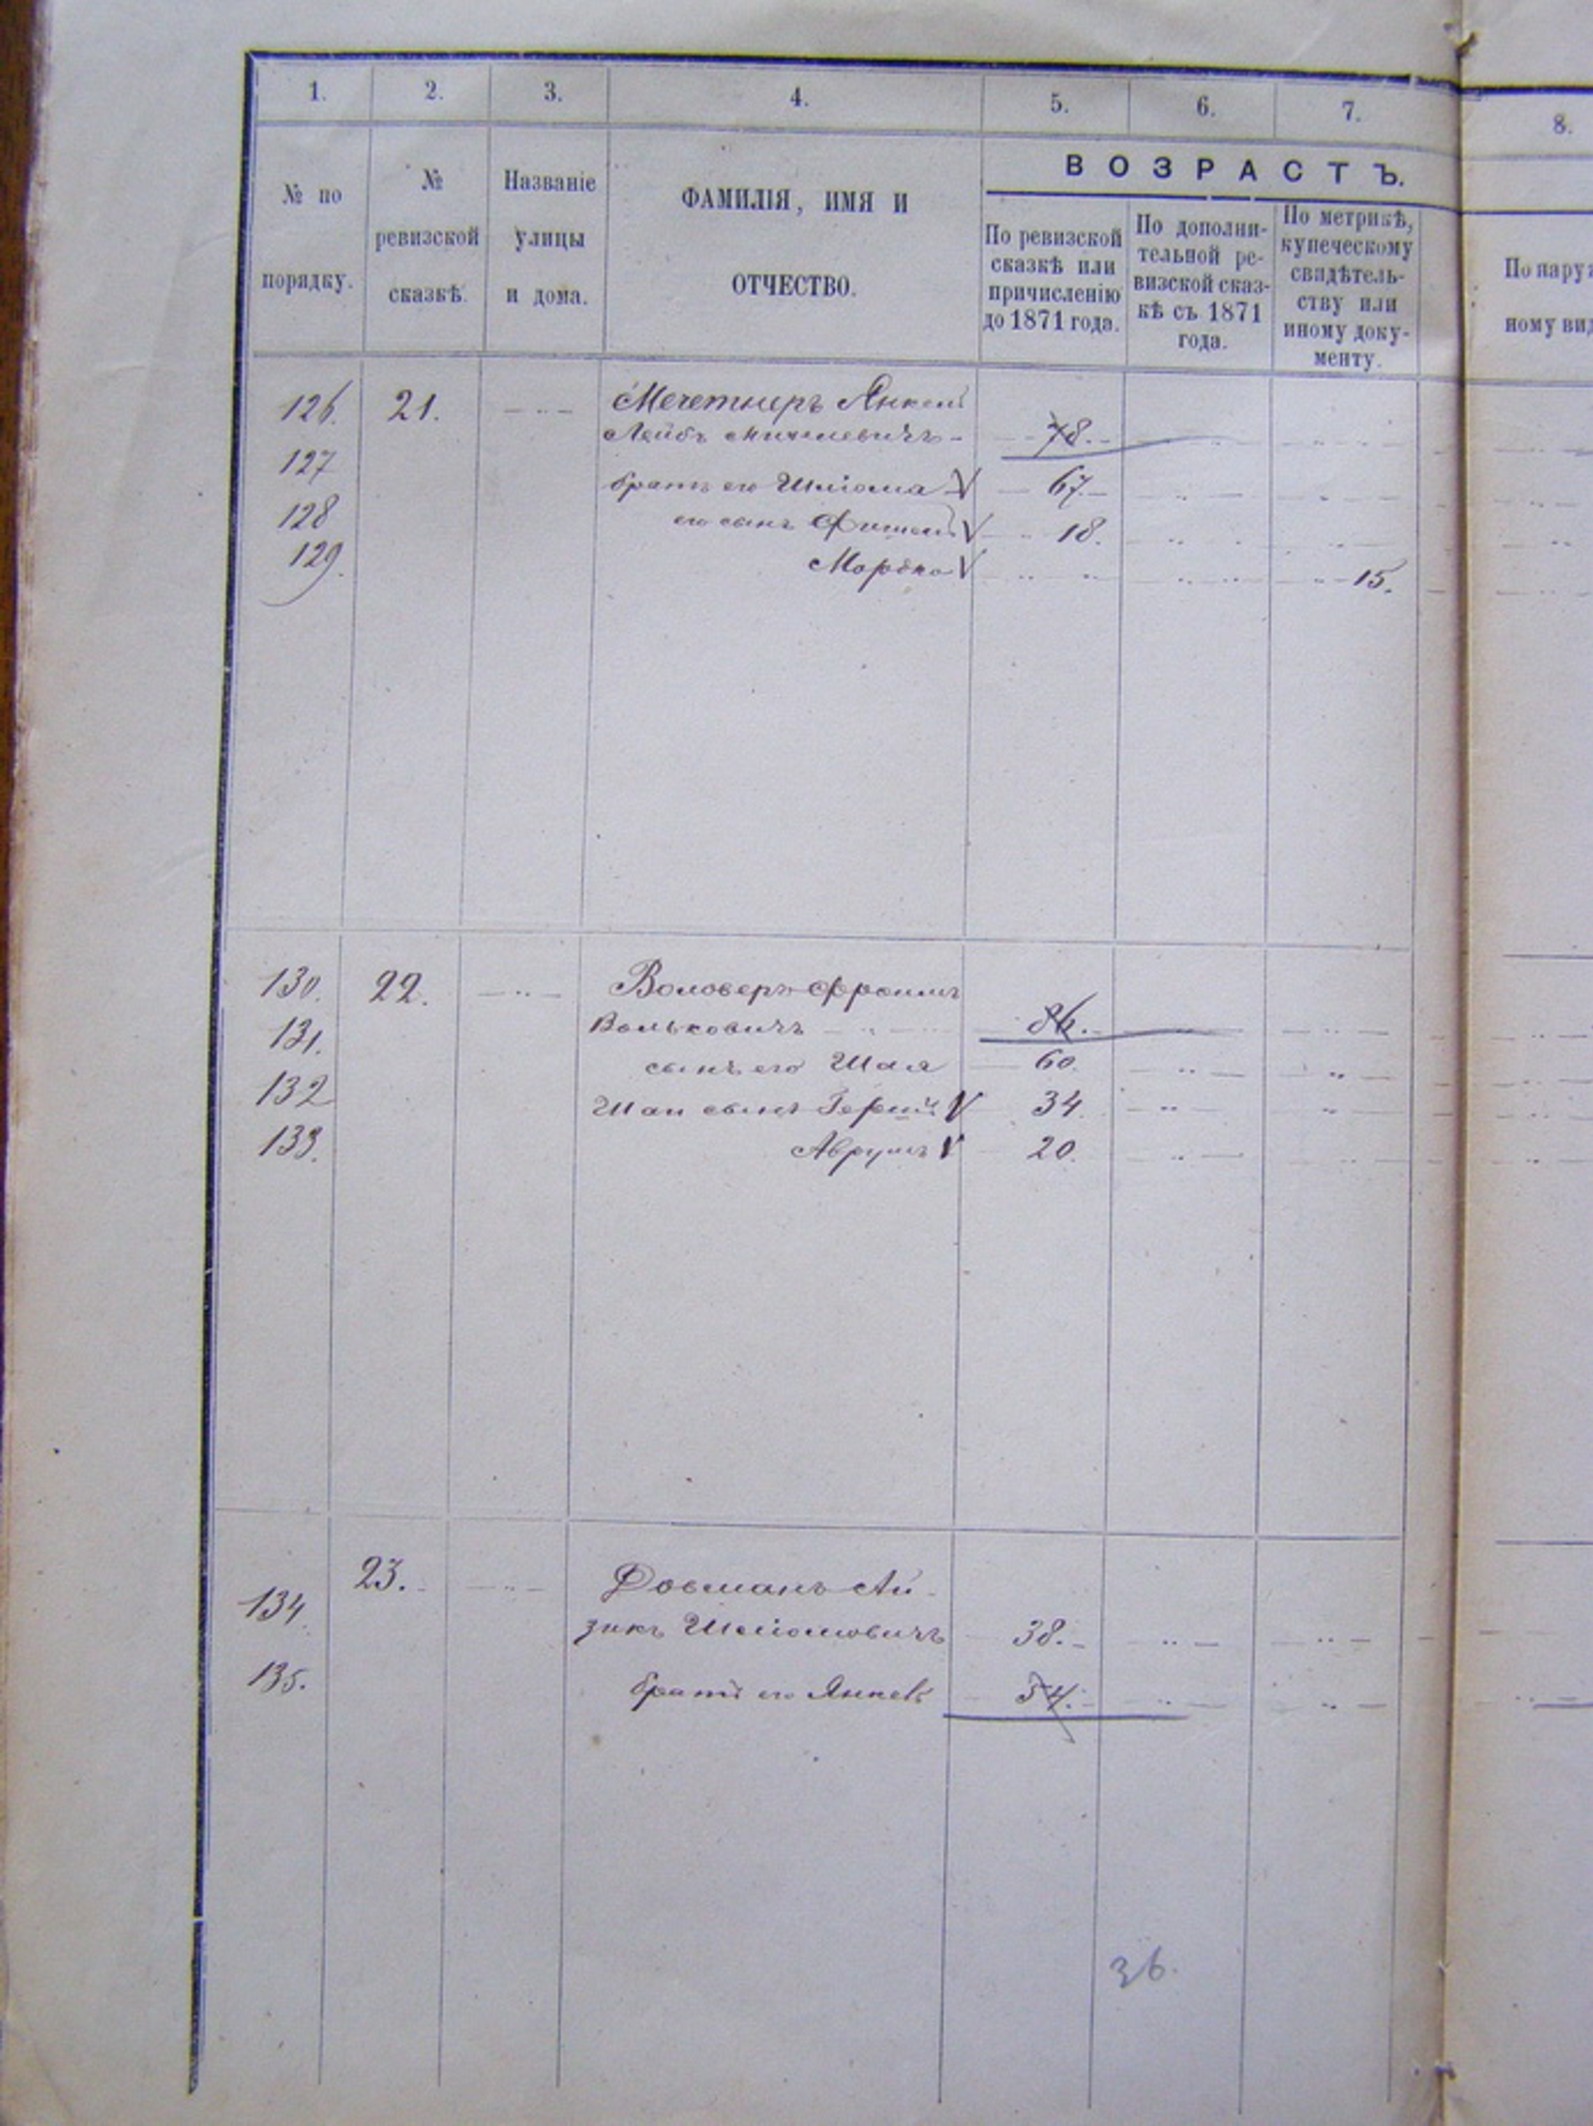 1. 2. 3. 4. 5. 6. 7. 8.
ВОЗРАСТЪ.
№ по
порядку.
№
ревизской
сказкѣ.
Названіе
улицы
и дома.
ФАМИЛІЯ, ИМЯ И
ОТЧЕСТВО.
По ревизской
сказкѣ или
причисленію
до 1871 года.
По дополни-
тельной ре-
визской сказ-
кѣ съ 1871
года.
По метрикѣ,
купеческому
свидѣтель-
ству или
иному доку-
менту.
По наруж
ному вид
126. 21. Мечетнеръ Янкель
Лейбъ 78.
127 братъ его Шліома V 67.
128 его сынъ Фишель V 18.
129. Мордко V 15.
130. 22. Воловеръ Фроимъ
Вольковичъ 86.
131. сынъ его Шая 60.
132 Шаи сынъ Герш V 34.
133. Аврумъ V 20.
134. 23. Довманъ Ай-
зикъ Шліомовичъ 38.
135. братъ его Янкель 54.
36.